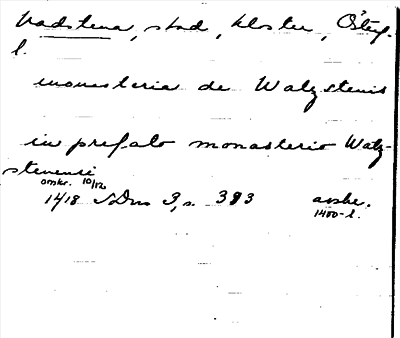 Vadstena, stad, kloster, Östg.
l.
monasteria de Watzstenis
in prefato monasterio Watz-
stenensi
omkr. 10/12
1418 SDns 3, s. 383 avskr.
1400-l.